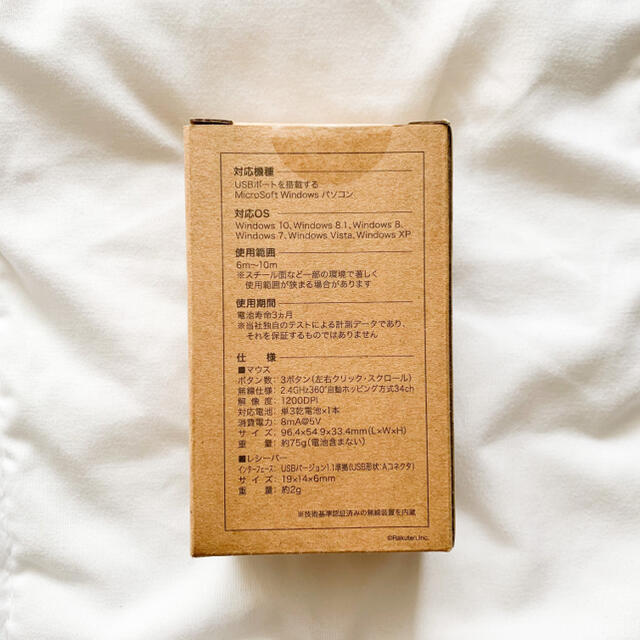 対応機種
USBポートを搭載する
MicroSoft Windows パソコン
対応OS
Windows 10、Windows 8.1、Windows 8、
Windows 7、Windows Vista、Windows XP
使用範囲
6m〜10m
※スチール面など一部の環境で著しく
使用範囲が狭まる場合があります
使用期間
電池寿命3ヵ月
※当社独自のテストによる計測データであり、
それを保証するものではありません
仕 様
■マウス
ボタン数：3ボタン(左右クリック・スクロール)
無線仕様：2.4GHz360°自動ホッピング方式34ch
解 像 度：1200DPI
対応電池：単3乾電池×1本
消費電力：8mA@5V
サ イ ズ：96.4×54.9×33.4mm(L×W×H)
重 量：約75g(電池含まない)
■レシーバー
インターフェース：USBバージョン1.1準拠(USB形状：Aコネクタ)
サ イ ズ：19×14×6mm
重 量：約2g
※技術基準認証済みの無線装置を内蔵
©Rakuten,Inc.